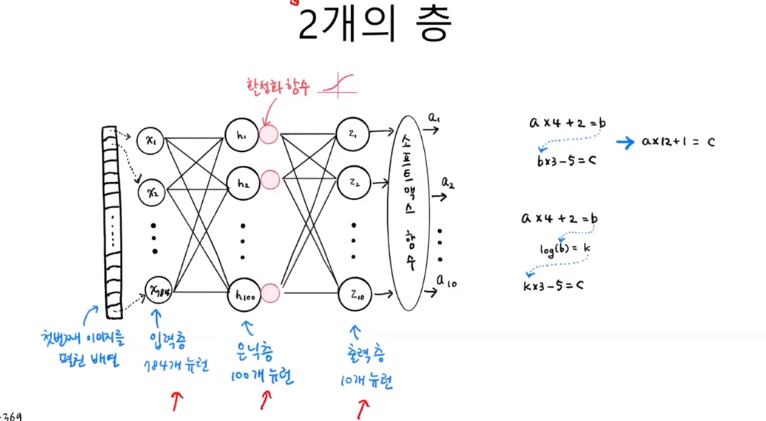 2개의 층
활성화 함수
x₁
x₂
x₇₈₄
h₁
h₂
h₁₀₀
z₁
z₂
z₁₀
소프트맥스 함수
a₁
a₂
a₁₀
첫번째 이미지를
펼친 배열
입력층
784개 뉴런
은닉층
100개 뉴런
출력층
10개 뉴런
a×4+2=b
b×3-5=c
a×12+1 = c
a×4+2=b
log(b)=k
k×3-5=c
369